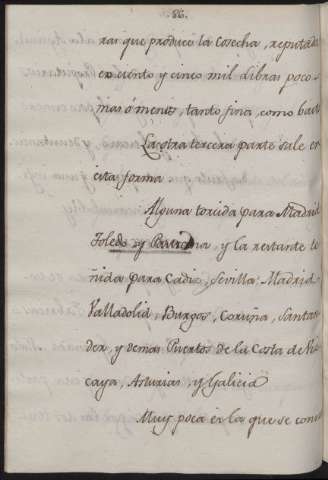 86.
ras que produce la Cosecha, reputada
en ciento y cinco mil libras poco
mas ó menos, tanto fina, como bast
La otra tercera parte sale en
esta forma.
Alguna torcida para Madrid
Toledo y na, y la restante te
ñida para Cadiz, Sevilla Madrid
Valladolid, Burgos, Coruña, Santan
der, y demas Puertos de la Costa de Viz
caya, Asturias, y Galicia
Muy poca es la que se cons